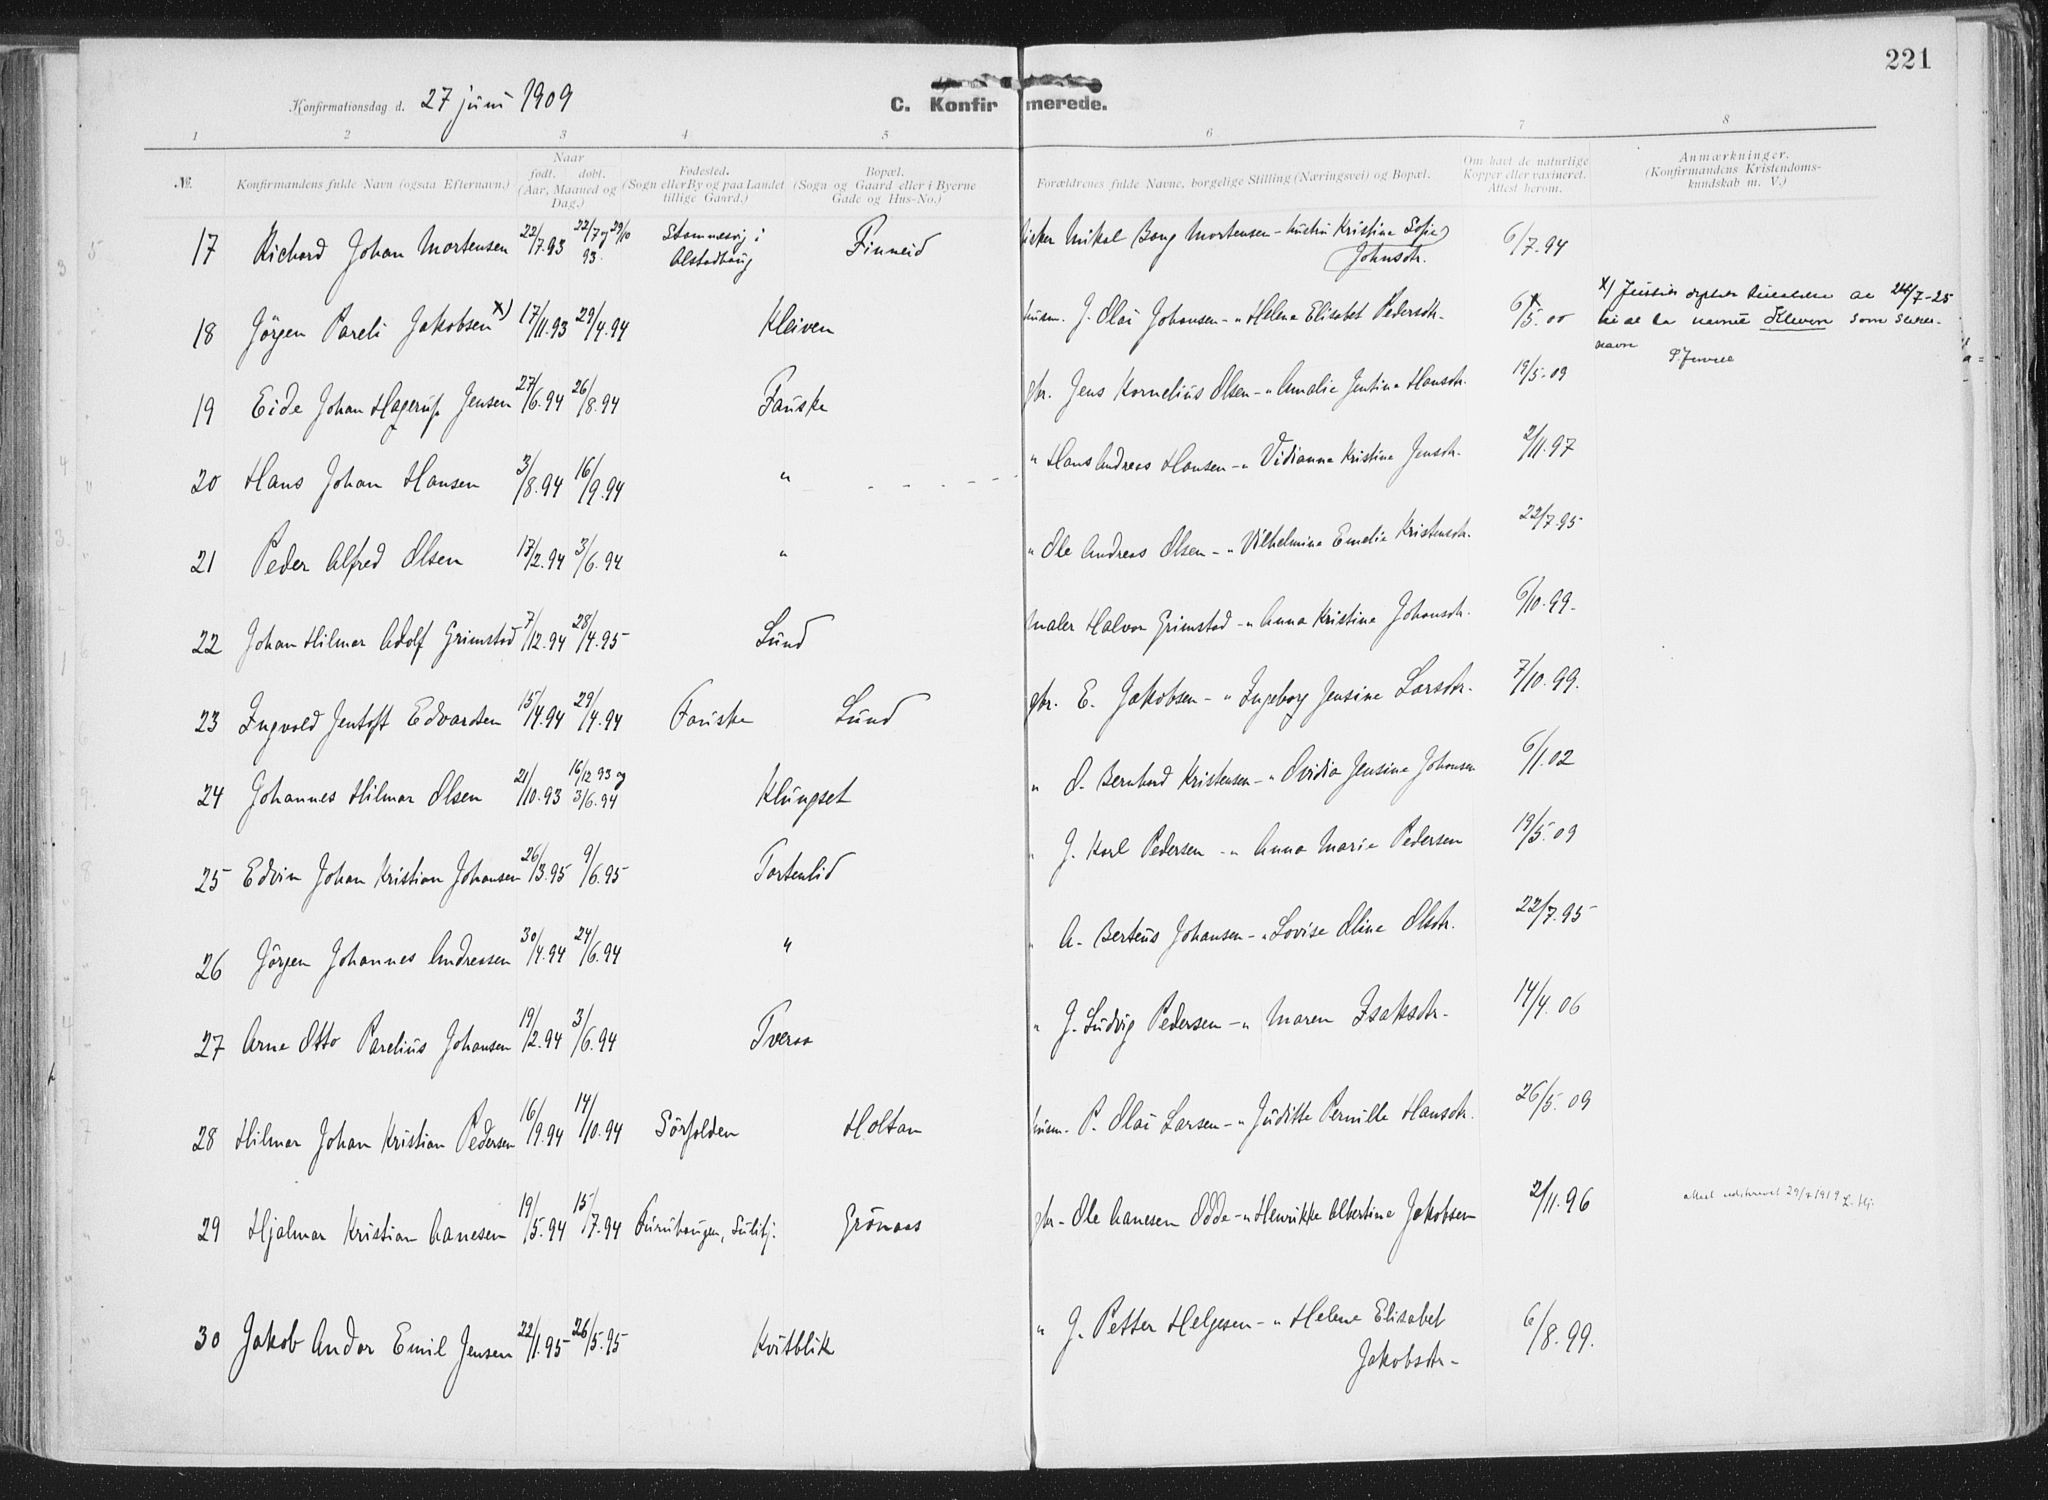 221
Konfirmationsdag d. 27 juni 1909
C. Konfirmerede.
1 2 3 4 5 6 7 8
№.
Konfirmandens fulde Navn (ogsaa Efternavn.)
Naar
født. døbt.
(Aar, Maaned og Dag.)
Fødested.
(Sogn eller By og paa Landet tillige Gaard.)
Bopæl.
(Sogn og Gaard eller i Byerne Gade og Hus-No.)
Forældrenes fulde Navne, borgelige Stilling (Næringsvei) og Bopæl.
Om havt de naturlige Kopper eller vaxineret. Attest herom.
Anmærkninger.
(Konfirmandens Kristendomskundskab m. V.)
17 Richard Johan Mortensen 22/7.93 22/7 og 29/10 93. Alstadhaug Finneid fisker Mikal Bang Mortensen - hustru Kristine Sofie Johnsdtr. 6/7.94
18 Jörgen Pareli Jakobsen x) 17/11.93 29/4.94 Kleiven husm. J. Olai Johansen - " Helene Elisabet Pedersdtr. 6/5.00 x) 24/7-25 navnet Kleven som
navn
19 Eide Johan Hagerup Jensen 27/6.94 26/8.94 Fauske gbr. Jens Kornelius Olsen - " Amalie Jentine Hansdtr. 19/5.09
20 Hans Johan Hansen 3/8.94 16/9.94 " " Hans Andreas Hansen - " Vidianna Kristine Jensdtr. 2/11.97
21 Peder Alfred Olsen 17/2.94 3/6.94 " " Ole Andreas Olsen - " Vilhelmine Emelie Kristensdtr. 22/7.95
22 Johan Hilmar Adolf Grimstad 7/12.94 28/4.95 Lund Maler Halvor Grimstad - " Anna Kristine Johansdtr. 6/10.99.
23 Ingvald Jentoft Edvardsen 15/4.94 29/4.94 Fauske Lund gbr. E. Jakobsen - " Ingeborg Jensine Larsdtr. 7/10.99.
24 Johannes Hilmar Olsen 21/10.93 16/12 93 og 3/6.94 Klungset " O. Bernhard Kristensen - " Ovidia Jensine Johansen 6/1.02
25 Edvin Johan Kristian Johansen 26/3.95 9/6.95 Tortenlid " J. Karl Pedersen - " Anna Marie Pedersen 19/5.09
26 Jörgen Johannes Andreasen 30/4.94 24/6.94 " " A. Berteus Johansen - " Lovise Oline Olsdtr. 22/7.95
27 Arne Otto Parelius Johansen 19/2.94 3/6.94 Tveraa " J. Ludvig Pedersen - " Maren Isaksdtr. 14/4.06
28 Hilmar Johan Kristian Pedersen 16/9.94 14/10.94 Sörfolden Holtan husm. P. Olai Larsen - " Juditte Pernille Hansdtr. 26/5.09
29 Hjalmar Kristian Aanesen 19/5.94 15/7.94 Furuhaugen, Sulitj. Grönaas gbr. Ole Aanesen Odde - " Henrikke Albertine Jakobsen 2/11.96 1919 L. Hj.
30 Jakob Andor Emil Jensen 22/1.95 26/5.95 Kvitblik " J. Petter Helgesen - " Helene Elisabet Jakobsdtr. 6/8.99.